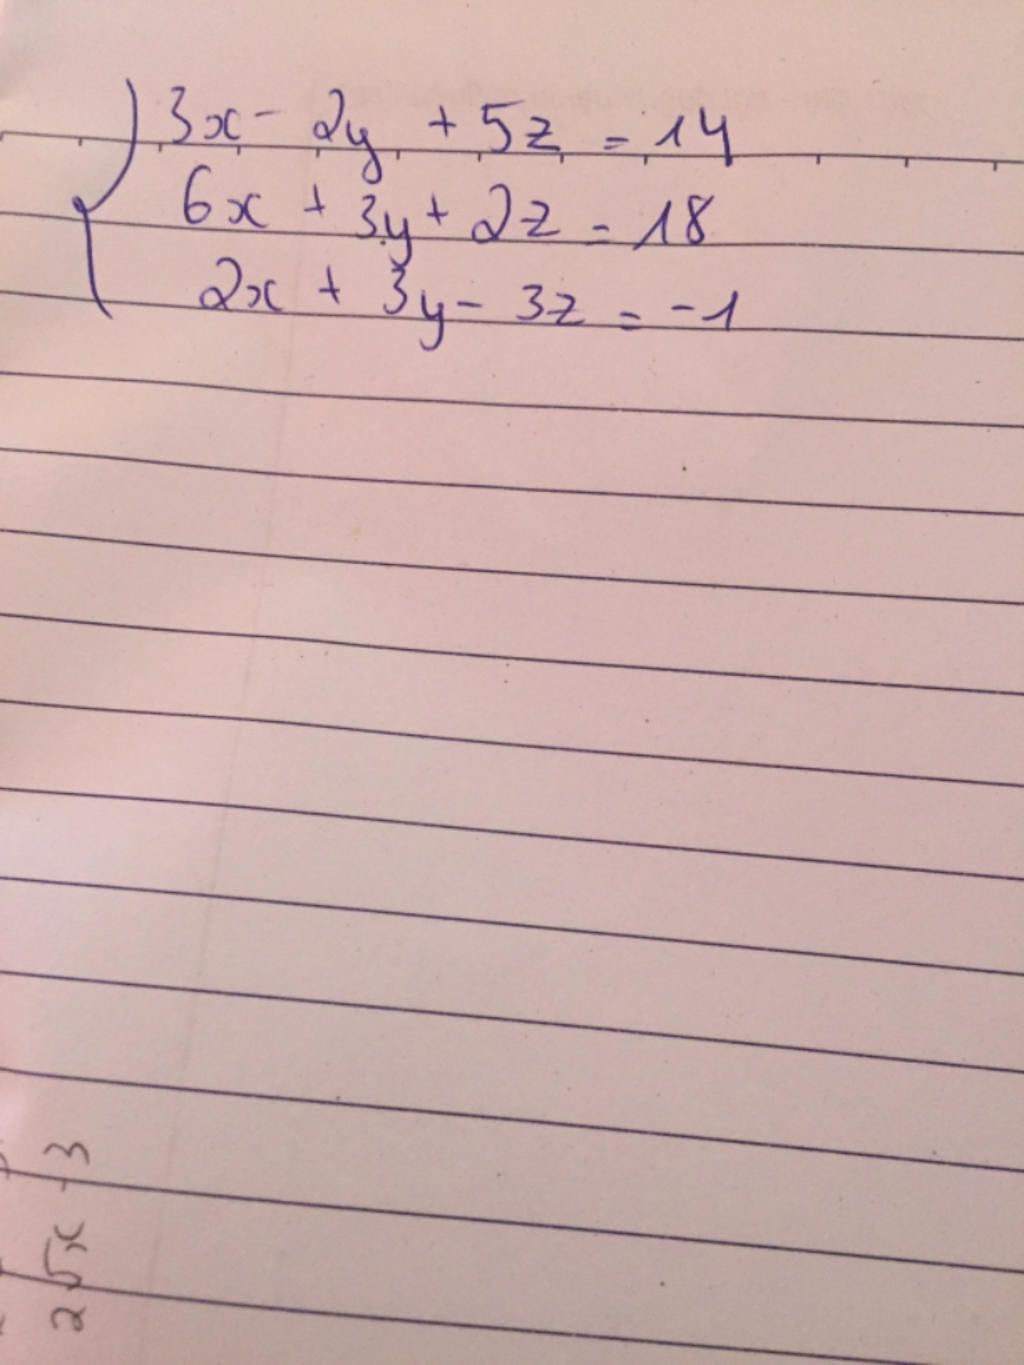 3x - 2y + 5z = 14
6x + 3y + 2z = 18
2x + 3y - 3z = -1